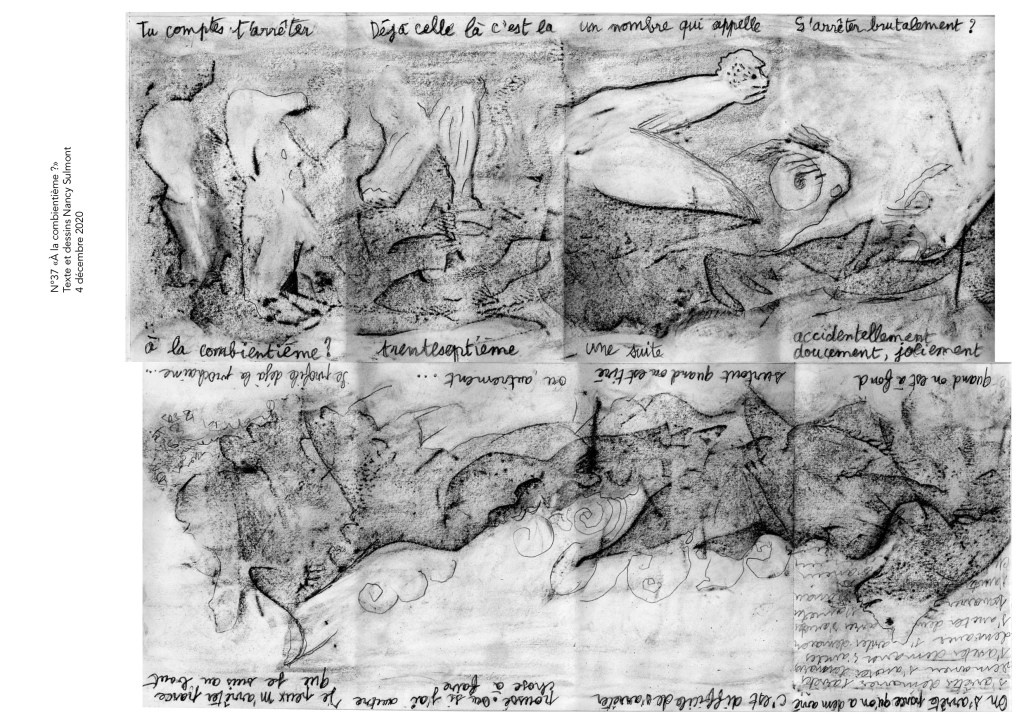 N°37 «À la combientième ?»
Texte et dessins Nancy Sulmont
4 décembre 2020
Tu comptes t'arrêter
à la combientième ?
Déjà celle là c'est la
trenteseptième
un nombre qui appelle
une suite
S'arrêter brutalement ?
accidentellement
doucement, joliement
On s'arrête parce qu'on a démarré
quand on est à fond
c'est difficile de s'arrêter
surtout quand on est tiré
poussé. Ou si j'ai autre
chose à faire
ou, autrement ...
je peux m'arrêter parce
que je suis au bout
Se profile déjà la prochaine...